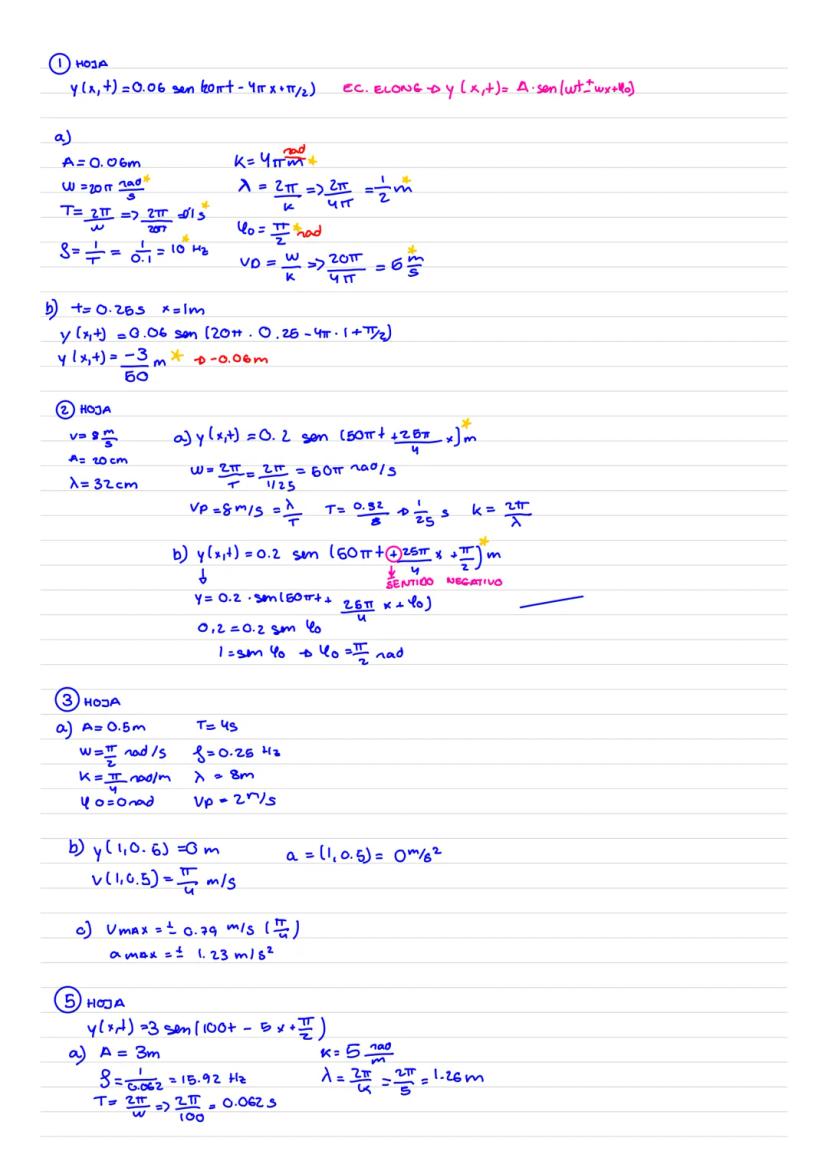 ① HOJA
y(x,t) = 0.06 sen (20πt - 4πx + π/2) EC. ELONG → y (x,t) = A·sen(wt ± wx + φ0)
a)
A = 0.06m K = 4π rad/m *
w = 20π rad/s * λ = 2π/K => 2π/4π = 1/2 m *
T = 2π/w => 2π/20π = 0'1s * φ0 = π/2 * rad
f = 1/T = 1/0.1 = 10 * Hz VP = w/K => 20π/4π = 5 m/s *
b) t = 0.25s x = 1m
y(x,t) = 0.06 sen (20π · 0.25 - 4π · 1 + π/2)
y(x,t) = -3/50 m * → -0.06m
② HOJA
v = 8 m/s a) y(x,t) = 0.2 sen (50πt + 25π/4 x) * m
A = 20cm w = 2π/T = 2π/1/25 = 50π rad/s
λ = 32cm VP = 8m/s = λ/T T = 0.32/8 → 1/25 s K = 2π/λ
b) y(x,t) = 0.2 sen (50πt + 25π/4 x + π/2) * m
↓ ↓ SENTIDO NEGATIVO
y = 0.2 · sen(50πt + 25π/4 x + φ0)
0,2 = 0.2 sen φ0
1 = sen φ0 → φ0 = π/2 rad
③ HOJA
a) A = 0.5m T = 4s
w = π/2 rad/s f = 0.25 Hz
K = π/4 rad/m λ = 8m
φ0 = 0rad VP = 2m/s
b) y(1,0.5) = 0 m a = (1,0.5) = 0 m/s²
v(1,0.5) = π/4 m/s
c) Vmax = ± 0.79 m/s (π/4)
amax = ± 1.23 m/s²
⑤ HOJA
y(x,t) = 3 sen (100t - 5x + π/2)
a) A = 3m K = 5 rad/m
f = 1/0.062 = 15.92 Hz λ = 2π/K = 2π/5 = 1.26m
T = 2π/w => 2π/100 = 0.062s